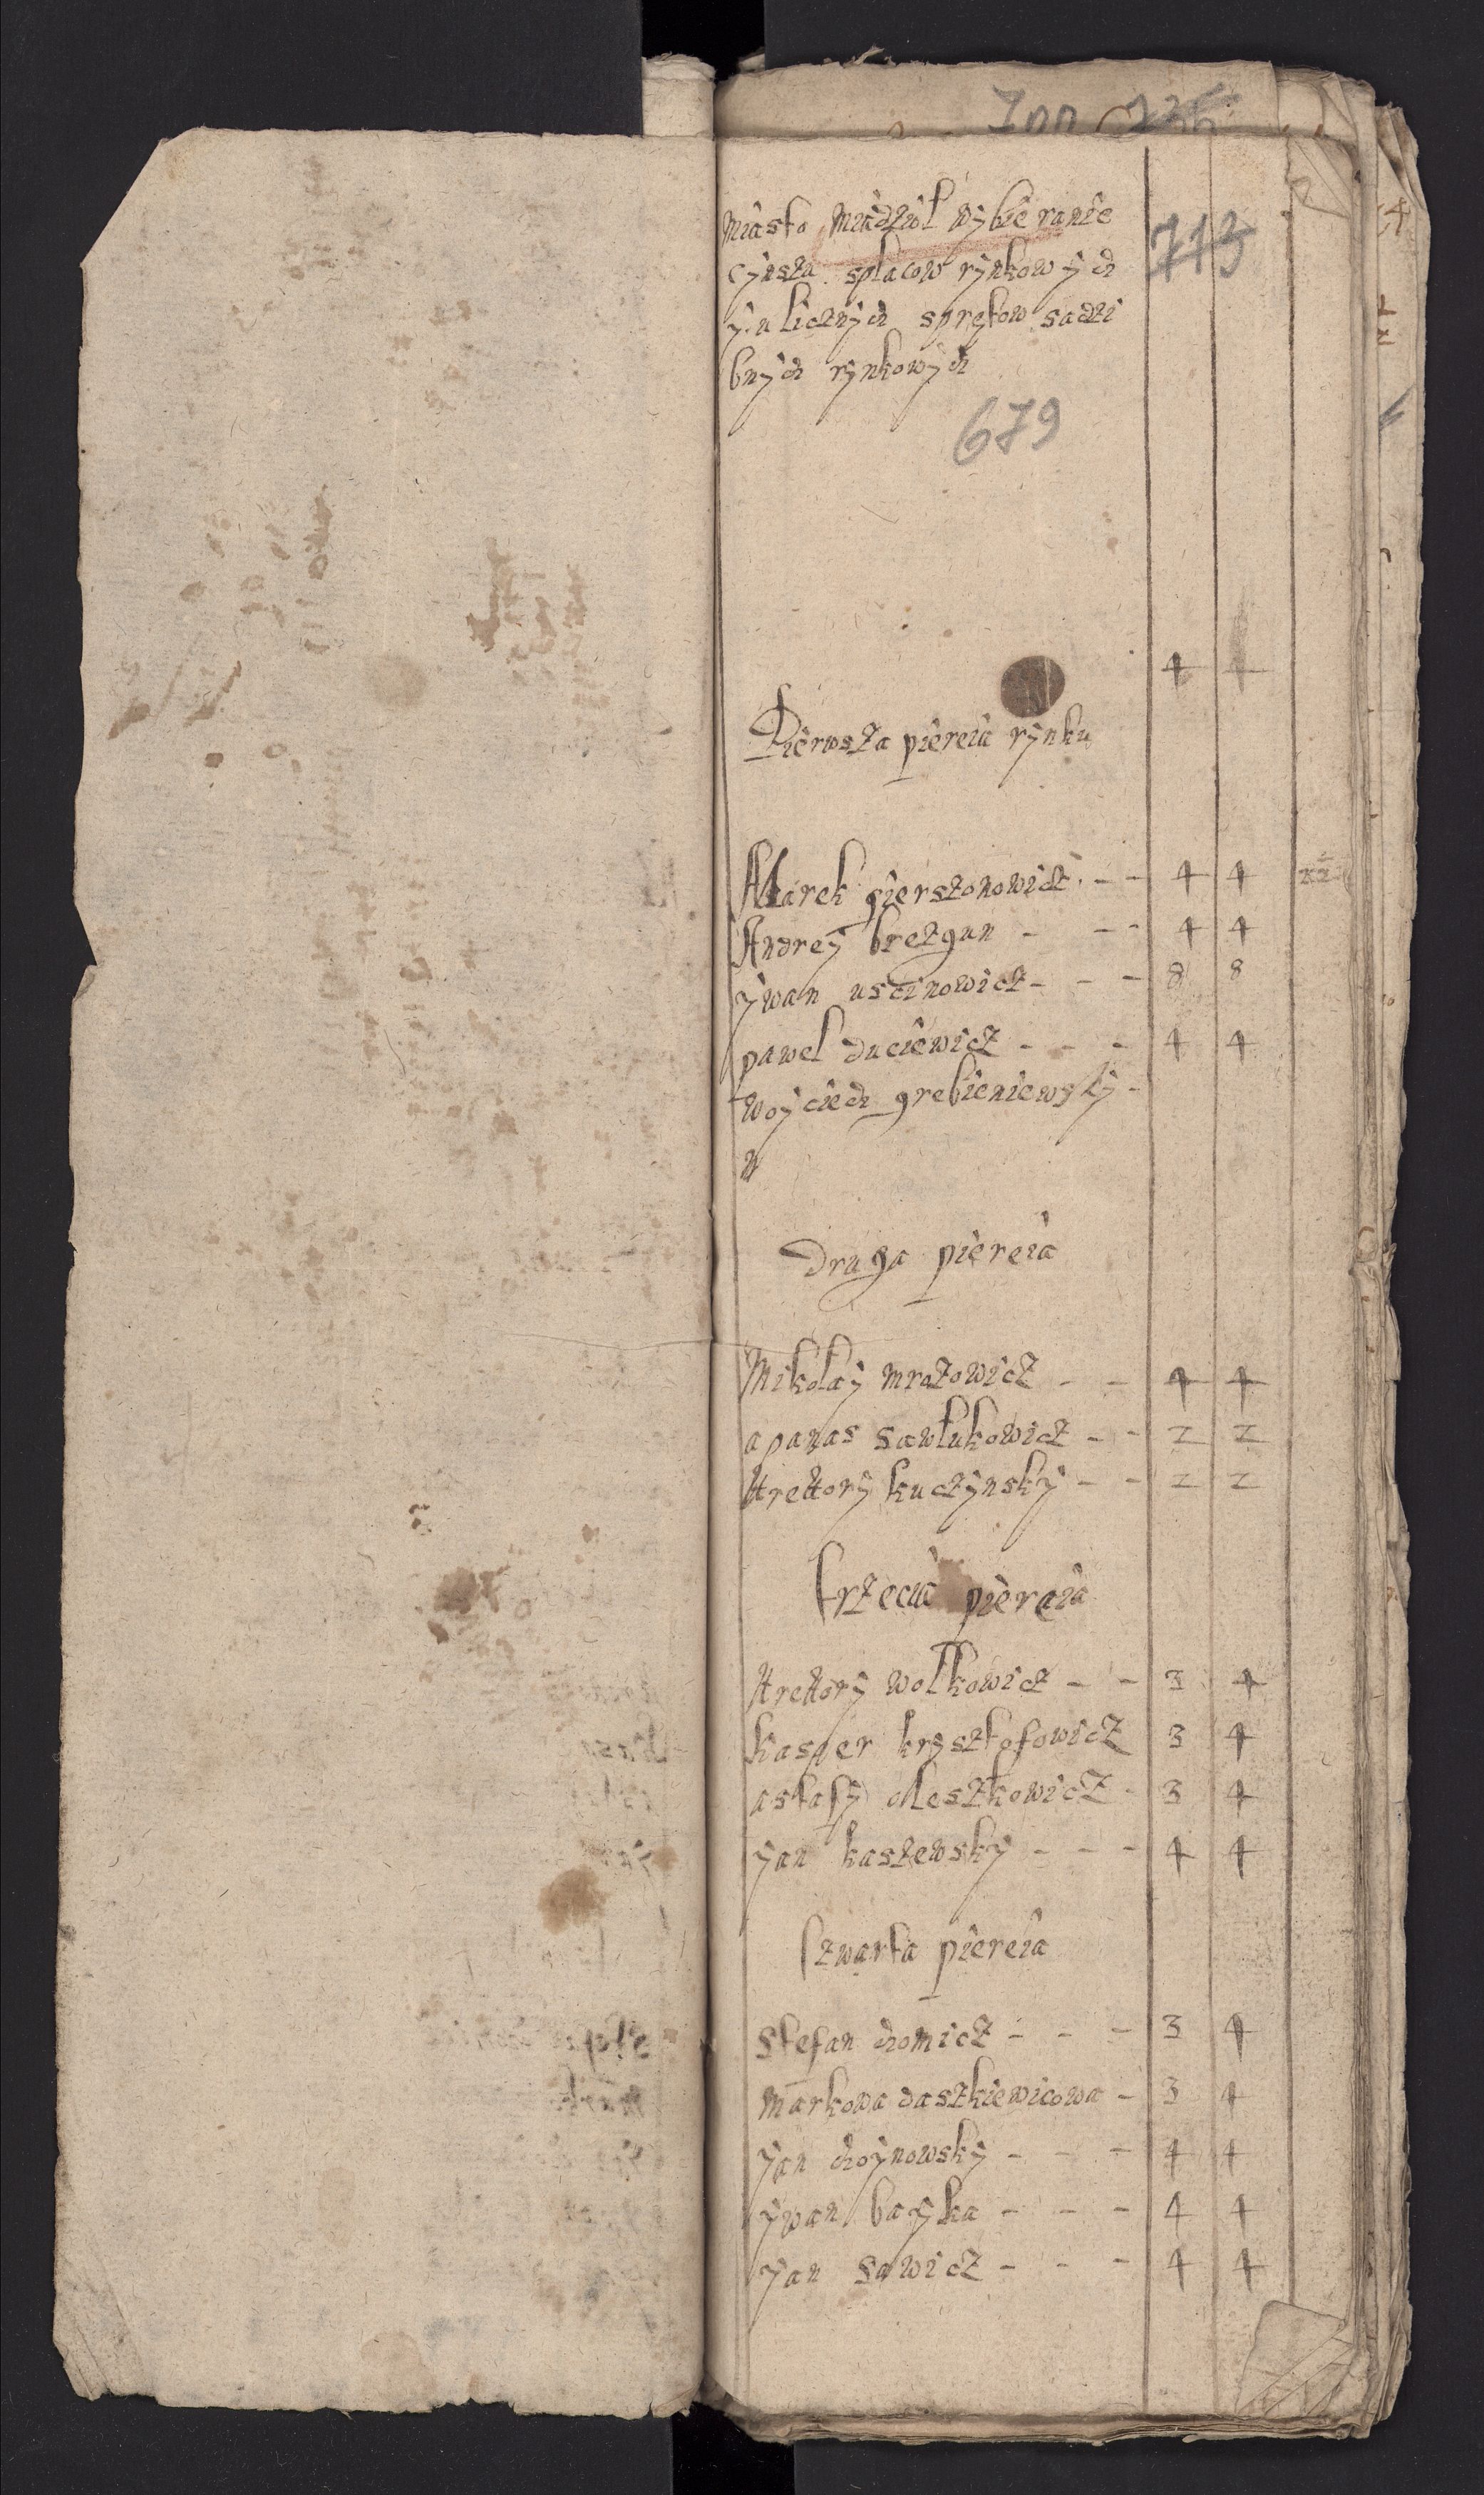 miasto miadziol wybieranie
cynszu splacow rynkowych
y ulicznych spretow sadzi
bnych rynkowych
713
679
4 4
Pierwsza piereia rynku
Marek pierszonowicz - - 4 4
Andrey brezgun - - - 4 4
ywan uscinowicz - - - 8 8
pawel duciewicz - - - 4 4
woyciech grebieniewsky -
Druga piereia
Mikolay mrozowicz - - 4 4
apanas sawlukowicz - - 2 2
Hrehory kuczynsky - - 2 2
trzecia piereia
Hrehory wolkowicz - - 3 4
kasper krysztofowicz 3 4
astafy oleszkowicz - 3 4
yan kaszewsky - - - 4 4
czwarta piereia
stefan chomicz - - - 3 4
markowa daszkiewicowa - 3 4
yan choynowsky - - - 4 4
ywan bayka - - - 4 4
yan sawicz - - - 4 4